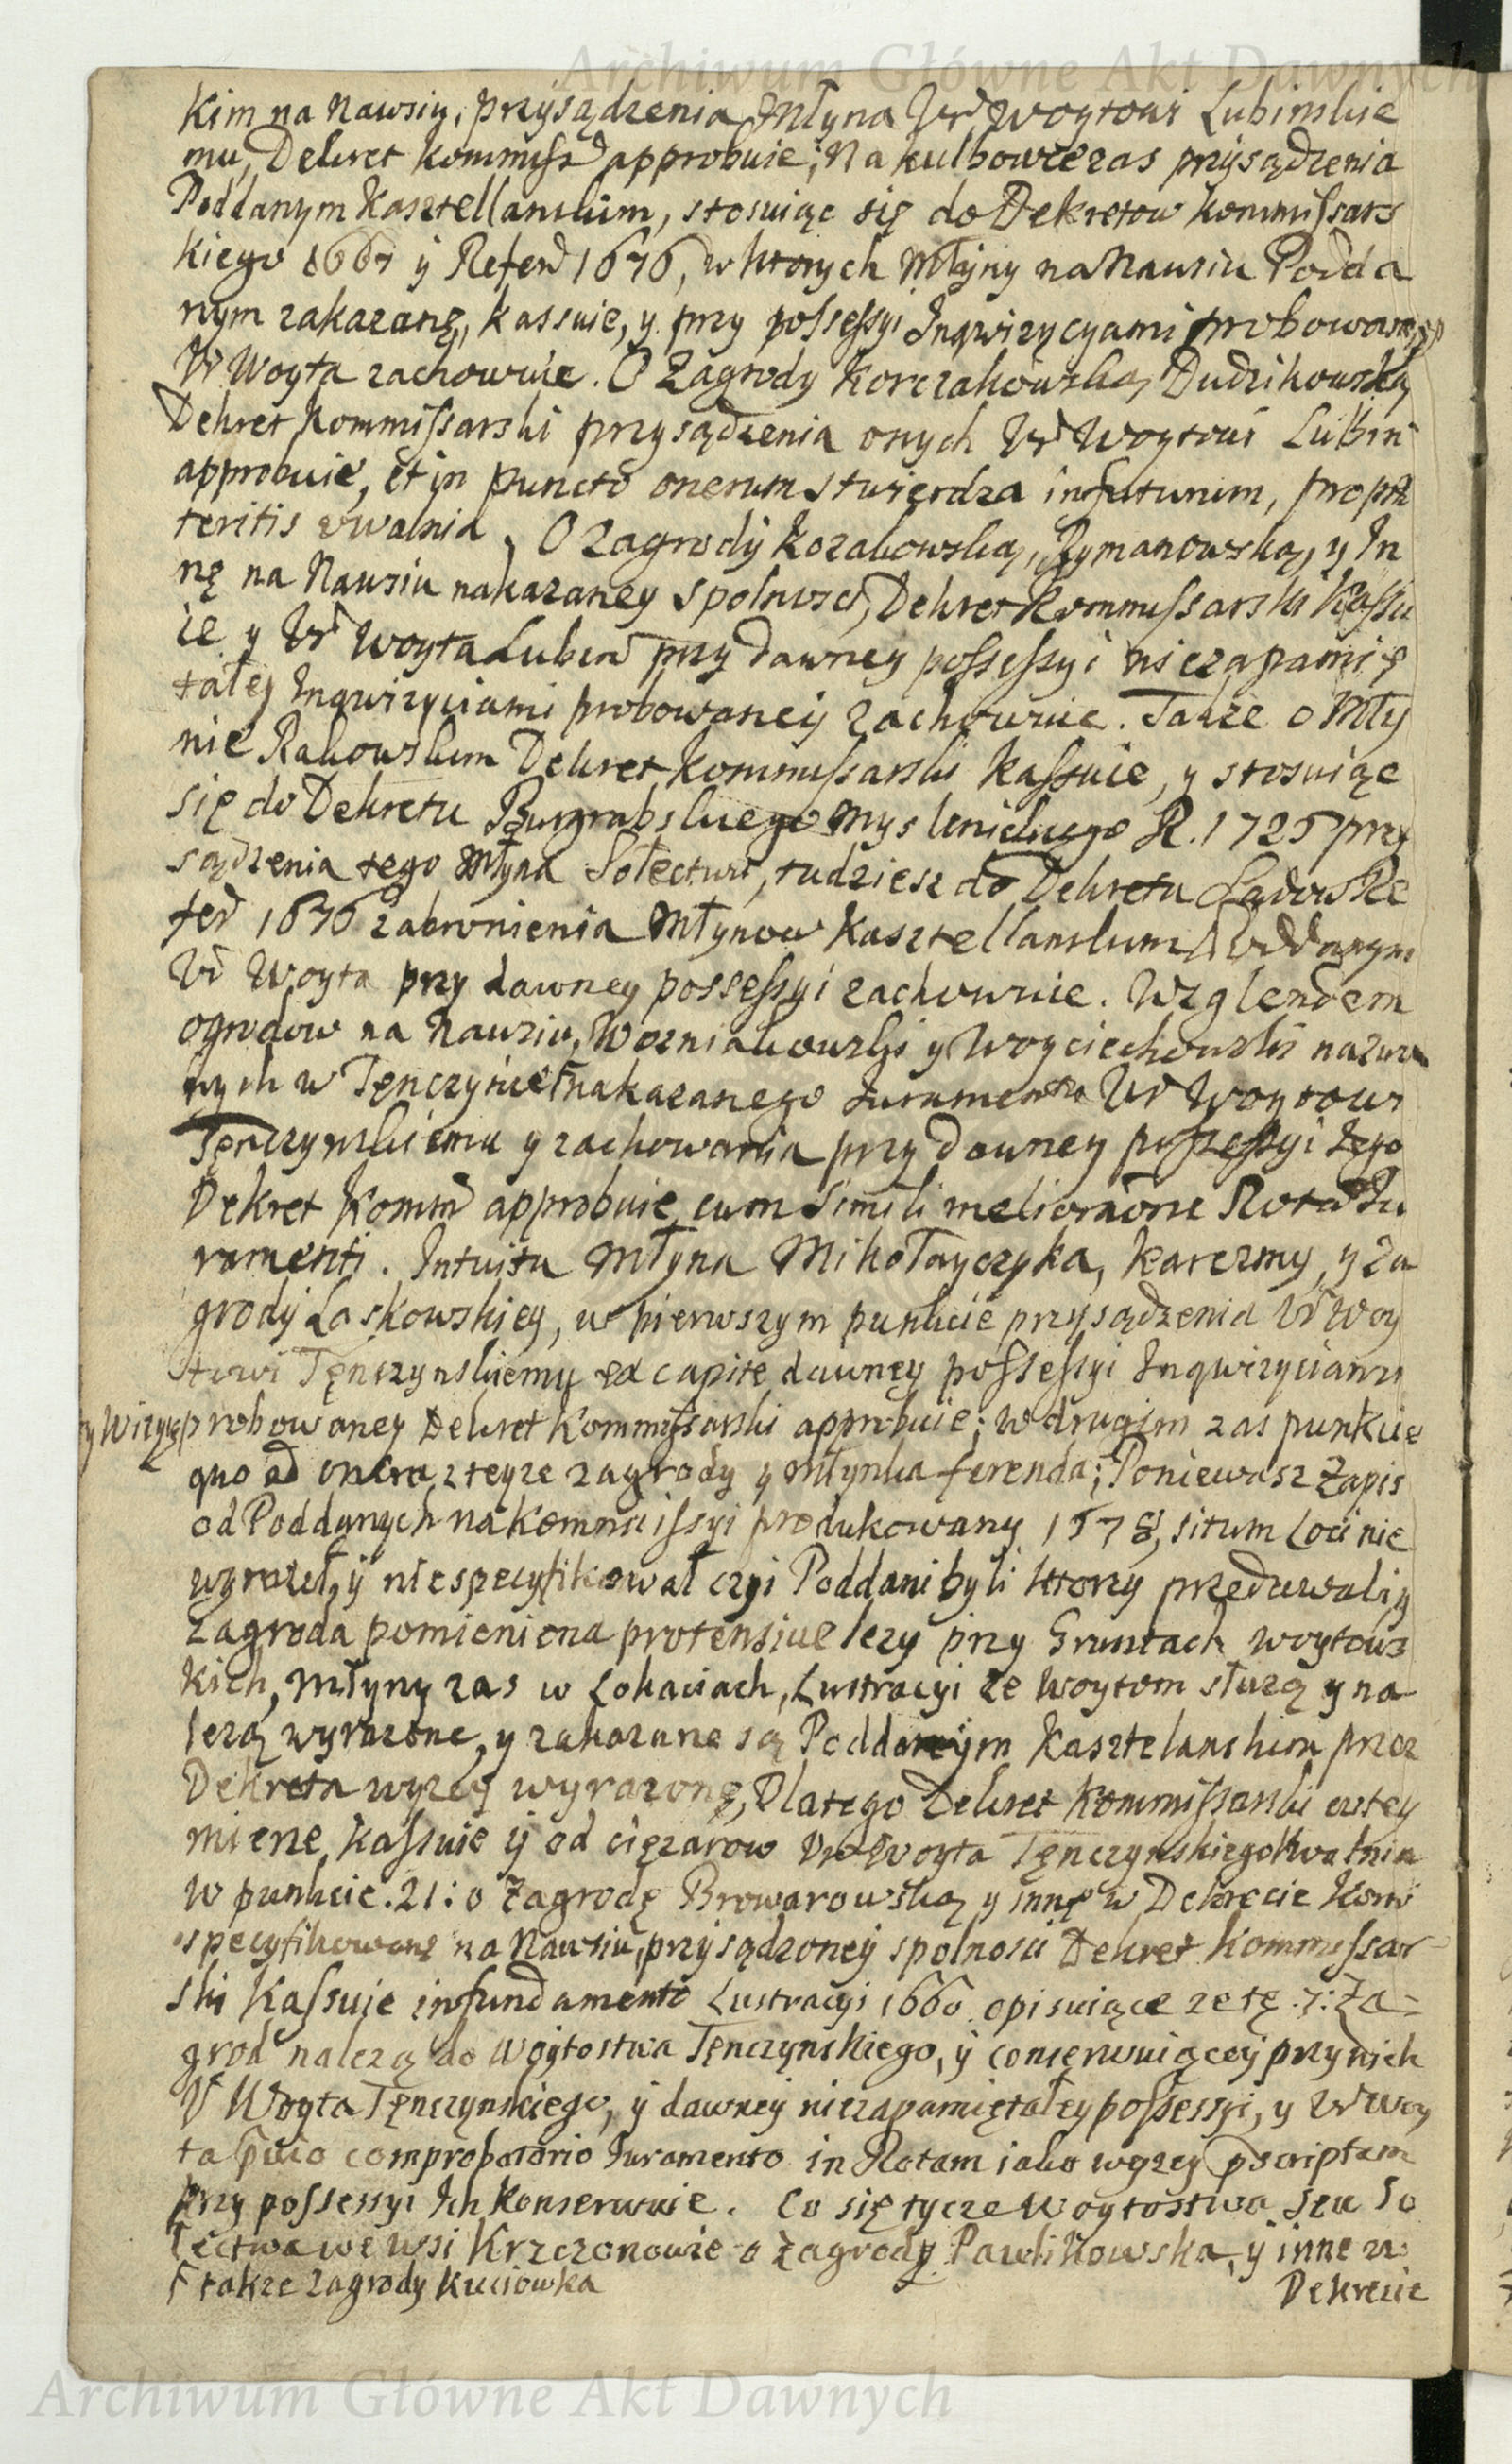 Archiwum Główne Akt Dawnych
Kim na Nawsiu, przysądzenia Młyna Ur Woytowi Lubinskie
mu, Dekret Kommiss approbuie; Na kulbowce zas przysądzenia
Poddanym Kasztellanskim, stosuiąc się do Dekretow Kommissars
kiego 1667 y Referd 1676, w ktorych Młyny na Nawsiu Podda
nym zakazanę, kassuie, y przy possessyi Inqwizycyami probowaney
Ur Woyta zachowuie. O Zagrody Korczakowską, Dudzikowską
Dekret Kommissarski przysądzenia onych Ur Woytowi Lubin
approbuie, et in puncto onerum stwierdza in futurum, pro præ
teritis uwalnia. O Zagrody Kozakowską, Rymanowską, y In
nę na Nawsiu nakazaney spolnosci, Dekret Kommissarski Kassu
ie y Ur Woyta Lubin przy dawney possessyi niezapamię
tałey Inqwizyciami probowaney zachowuie. Takze o Mły
nie Rakowskim Dekret Kommissarski Kassuie, y stosuiąc
się do Dekretu Burgrabskiego Myslenickiego R. 1725 przy
sądzenia tego Młyna Sołectwu, tudziesz do Dekretu Sądow Re
ferd 1676 zabronienia Młynow Kasztellanskim Poddanym
Ur Woyta przy dawney possessyi zachowuie. Wzglendem
ogrodow na Nawsiu, Wozniakowski y Woyciechowski nazwa
nych w Tęnczynie Γ nakazanego Juramentu Ur Woytowi
Tęnczynskiemu y zachowania przy dawney possessyi Jego
Dekret Komm approbuie cum simili melioraõne Rotæ Ju
ramenti. Intuitu Młyna Mikołayczyka, karczmy, y Za
grody Laskowskiey, w pierwszym punkcie przysądzenia Ur Woy
towi Tęnczynskiemu ex capite dawney possessyi Inqwizyciami
y Wizyią probowaney Dekret Kommissarski approbuie; w drugim zas punkcie
quo ad onera z teyze zagrody y Młynka ferenda; Poniewasz Zapis
od Poddanych na Kommissyi produkowany 1578, situm loci nie
wyraził, y niespecyfikował czyi Poddani byli ktorzy przedawali, y
Zagroda pomieniona protensive lezy przy Gruntach woytows
kich, Młyny zas w Lokaciach, Lustracyi ze Woytom słuzą y na
lezą wyrazone, y zakazane są Poddanym Kasztelanskim przez
Dekreta wyzey wyrazonę, Dlatego Dekret Kommissarski w tey
mierze kassuie y od cięzarow Ur Woyta Tęnczynskiego Uwalnia
W punkcie. 21: o Zagrodę Browarowską y innę w Dekrecie Kom
specyfikowanę na Nawsiu, przysądzoney spolnosci Dekret Kommissar
ski Kassuie in fundamento Lustracyi 1660 opisuiące ze tę .7: Za=
grod nalezą do Woytostwa Tęnczynskiego, y conserwuiącey przy nich
U Woyta Tęnczynskiego, y dawney niezapamiętałey possessyi, y Ur Woy
ta comprobatorio Juramento in Rotam iako wyzey pscriptam
przy possessyi Ich Konserwuie. Co się tycze Woytostwa seu So
łectwa we wsi Krzczonowie o Zagrody Pawlikowska, y inne w
Γ takze Zagrody Kuciowka
Dekrecie
Archiwum Główne Akt Dawnych